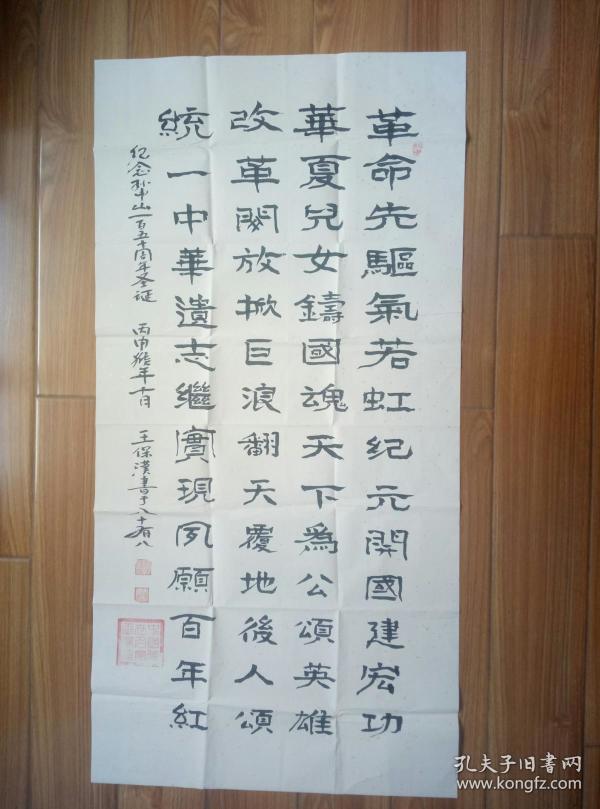 革命先驅氣若虹纪元開國建宏功
華夏兒女鑄國魂天下為公頌英雄
改革開放掀巨浪翻天覆地後人頌
統一中華遺志繼實現夙願百年紅
纪念孙中山一百五十周年圣诞 丙申猴年十月 王保漢書于八十有八
孔夫子旧书网
www.kongfz.com